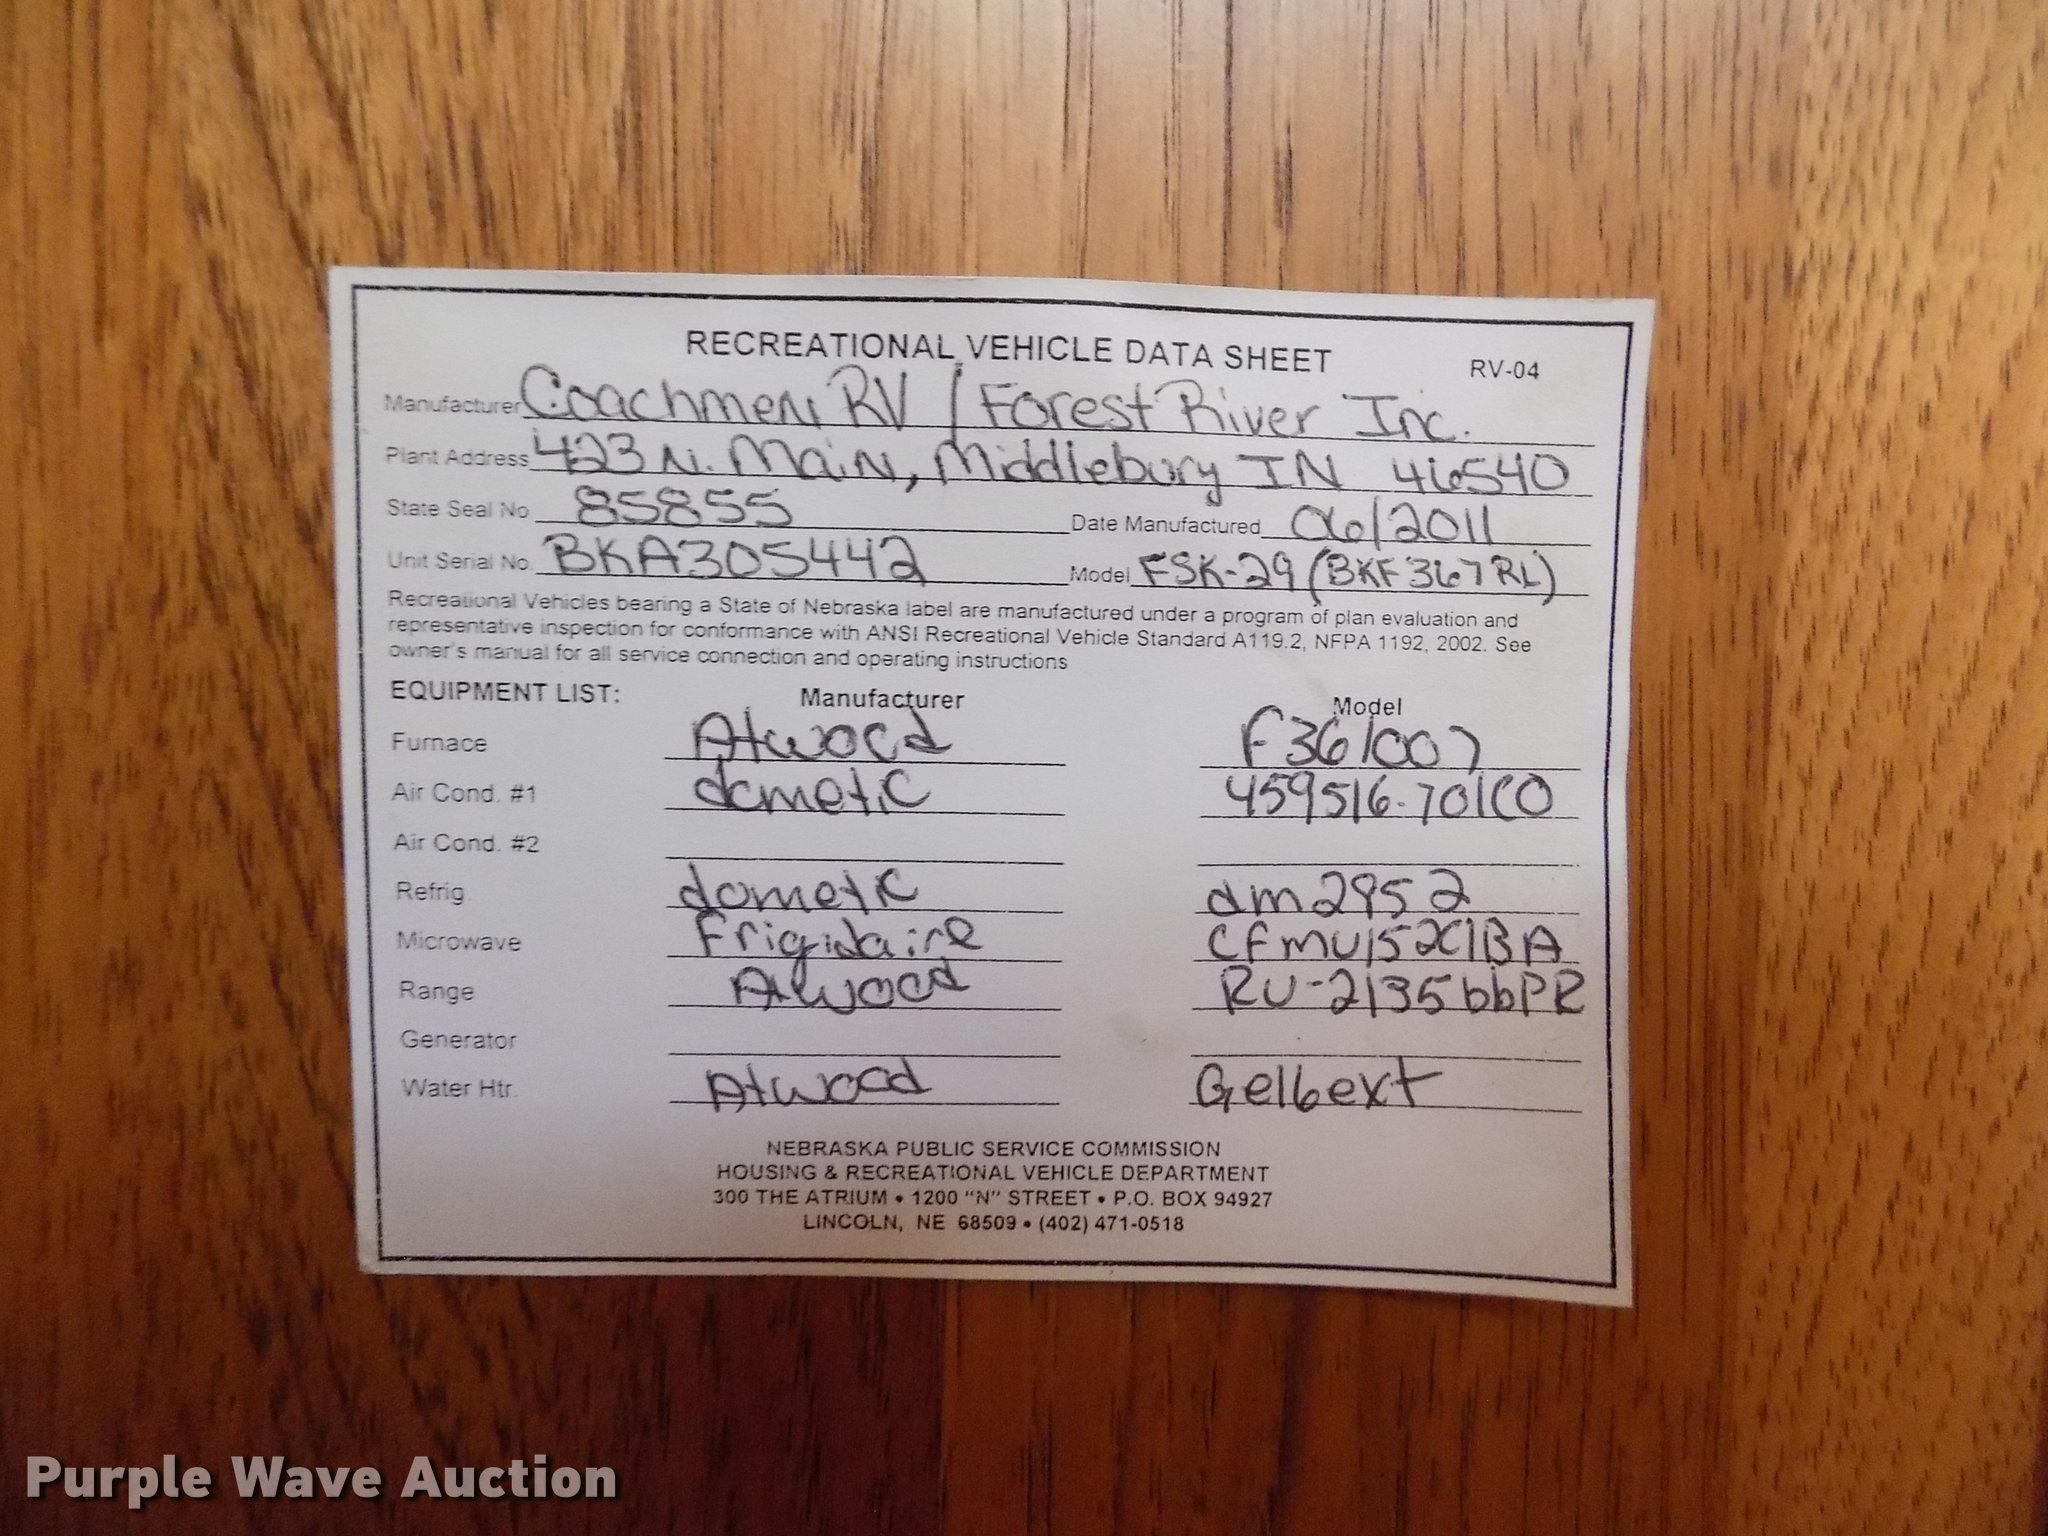 RECREATIONAL VEHICLE DATA SHEET RV-04
Manufacturer Coachmen RV / Forest River Inc.
Plant Address 423 N. Main, Middlebury IN 46540
State Seal No. 85855 Date Manufactured 06/2011
Unit Serial No. BKA305442 Model FSK-29 (BKF367RL)
Recreational Vehicles bearing a State of Nebraska label are manufactured under a program of plan evaluation and
representative inspection for conformance with ANSI Recreational Vehicle Standard A119.2, NFPA 1192, 2002. See
owner's manual for all service connection and operating instructions
EQUIPMENT LIST: Manufacturer Model
Furnace Atwood F361007
Air Cond. #1 dometic 459516.701C0
Air Cond. #2
Refrig dometic dm2952
Microwave Frigidaire CFMU152C1BA
Range Atwood RU-2135bbPR
Generator
Water Htr. Atwood Ge16ext
NEBRASKA PUBLIC SERVICE COMMISSION
HOUSING & RECREATIONAL VEHICLE DEPARTMENT
300 THE ATRIUM • 1200 "N" STREET • P.O. BOX 94927
LINCOLN, NE 68509 • (402) 471-0518
Purple Wave Auction